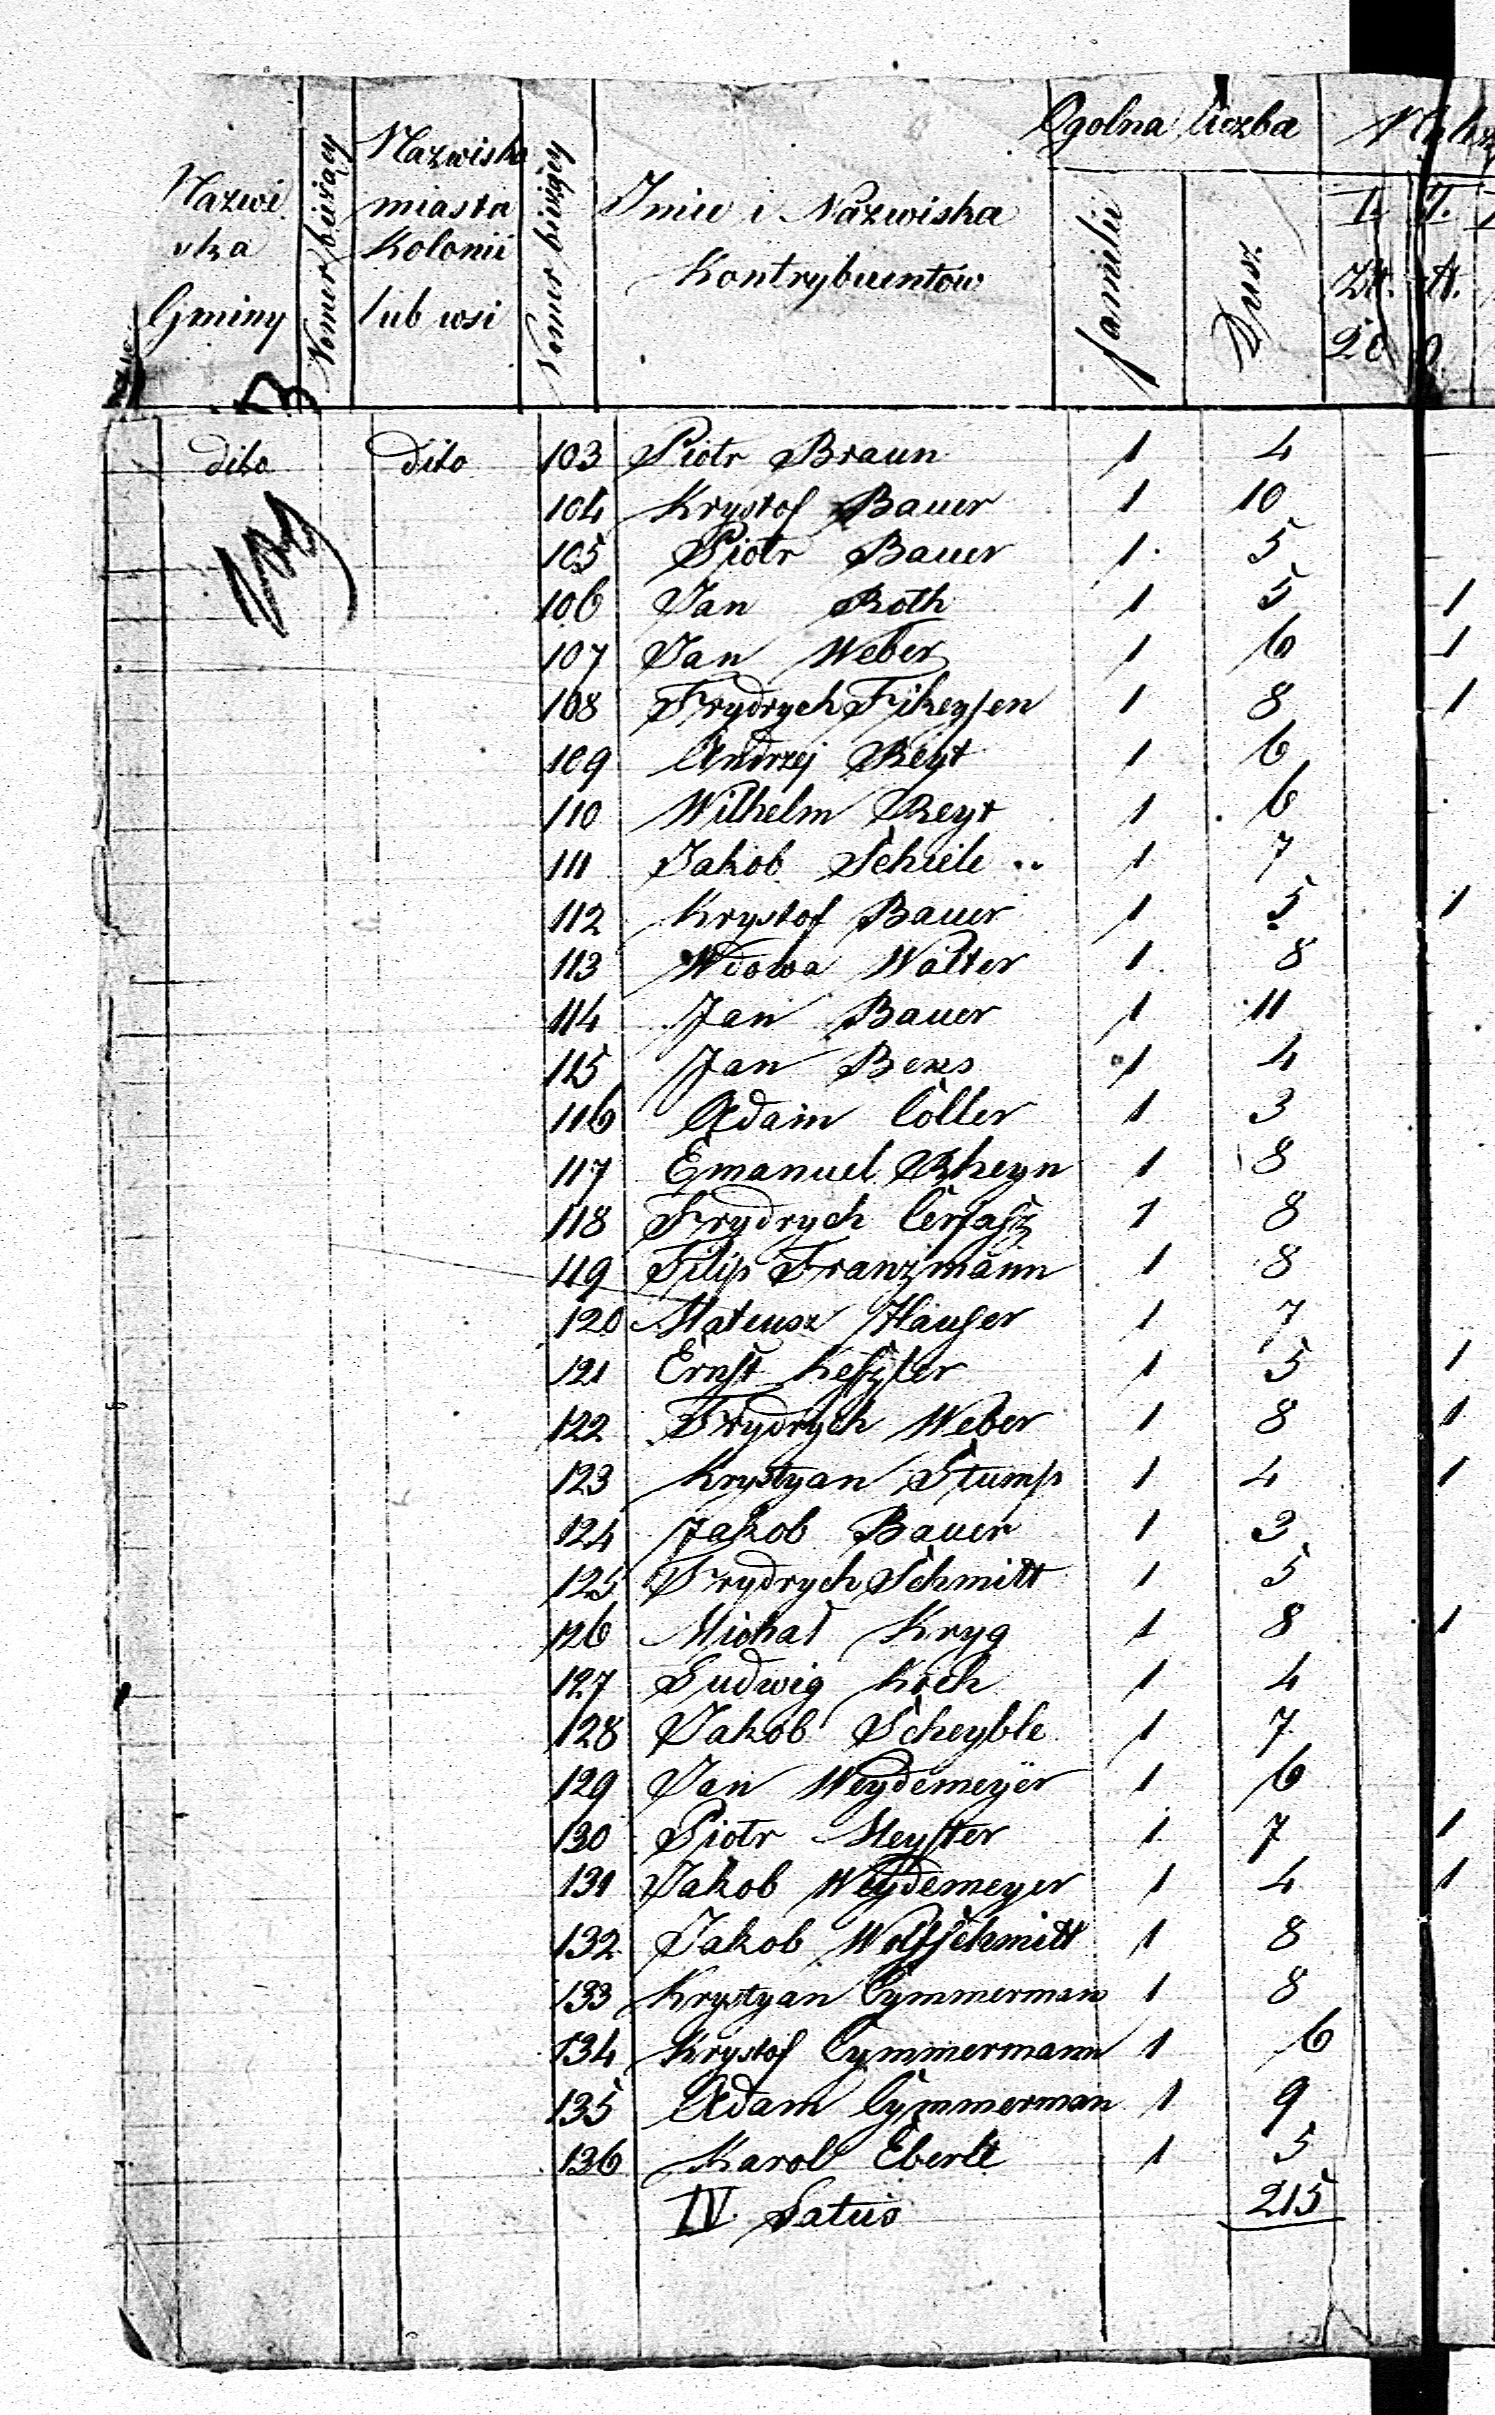 Nazwi
ska
Gminy
Nomer bieżący
Nazwiska
miasta
Kolonii
lub wsi
Nomer bieżący
Imie i Nazwiska
Kontrybuentow
Ogolna liczba
familii
Dusz.
I. II.
Zł. Zł.
20
dito dito 103 Piotr Braun 1 4
104 Krystof Bauer 1 10
105 Piotr Bauer 1 5
106 Jan Roth 1 5 1
107 Jan Weber 1 6 1
108 Frydrych Fikeysen 1 8 1
109 Andrzej Reyt 1 6
110 Wilhelm Reyt 1 6
111 Jakob Scheile 1 7
112 Krystof Bauer 1 5 1
113 Wdowa Walter 1 8
114 Jan Bauer 1 11
115 Jan 1 4
116 Adam Coller 1 3
117 Emanuel Rheyn 1 8
118 Frydrych Cerfasz 1 8
119 Filip Franzmann 1 8
120 Mateusz Hauser 1 7
121 Ernst Keszler 1 5 1
122 Frydrych Weber 1 8 1
123 Krystyan Stump 1 4 1
124 Jakob Bauer 1 3
125 Frydrych Schmitt 1 5
126 Michał Kryg 1 8 1
127 Ludwig Koch 1 4
128 Jakob Scheyble 1 7
129 Jan Weydemeyer 1 6
130 Piotr Meyster 1 7 1
131 Jakob Weydemeyer 1 4 1
132 Jakob Wolfschmitt 1 8
133 Krystyan Cymmerman 1 8
134 Krystof Cymmermann 1 6
135 Adam Cymmerman 1 9
136 Karol Eberlt 1 5
IV Latus 215